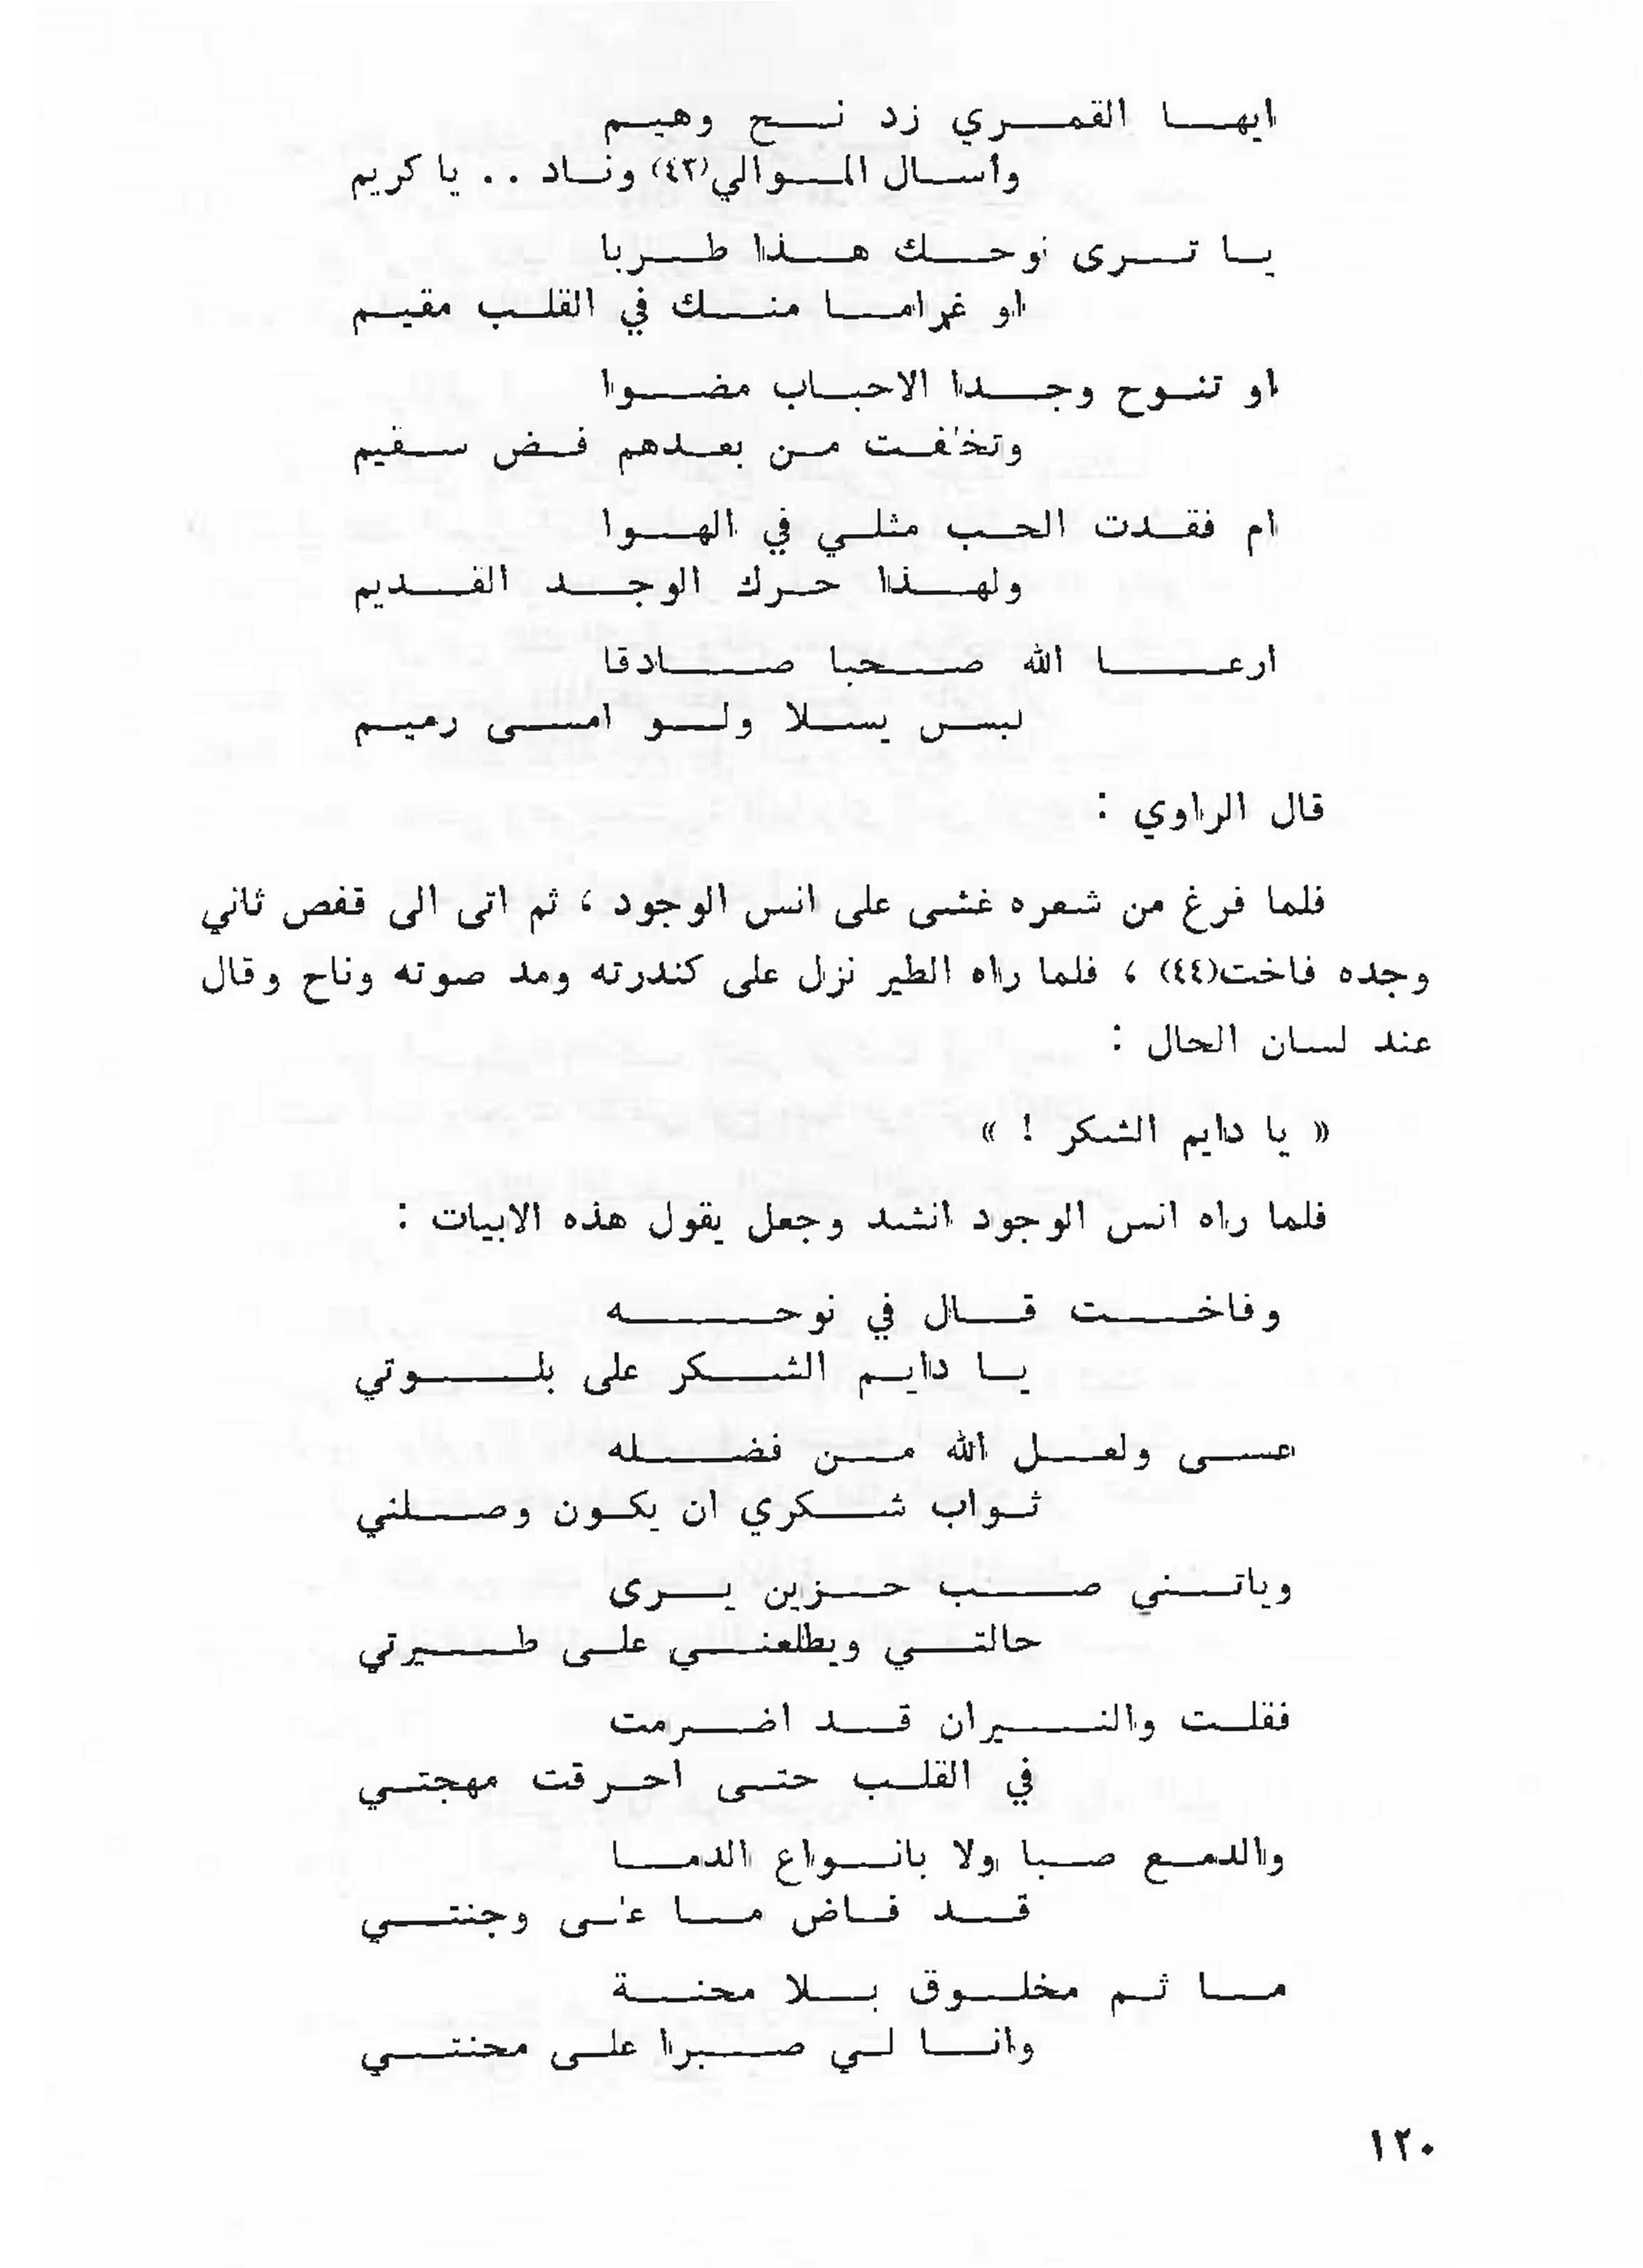 ايها القمري زد نح وهيم
وأسال الموالي(٤٣) وناد . . يا كريم
يا ترى نوحك هذا طربا
او غراما منك في القلب مقيم
او تنوح وجدا الاحباب مضوا
وتخلفت من بعدهم فض سقيم
ام فقدت الحب مثلي في الهوا
ولهذا حرك الوجد القديم
ارعا الله صحبا صادقا
ليس يسلا ولو امسى رميم
قال الراوي :
فلما فرغ من شعره غشى على انس الوجود ، ثم اتى الى قفص ثاني
وجده فاخت(٤٤) ، فلما راه الطير نزل على كندرته ومد صوته وناح وقال
عند لسان الحال :
« يا دايم الشكر ! »
فلما راه انس الوجود انشد وجعل يقول هذه الابيات :
وفاخت قال في نوحه
يا دايم الشكر على بلوتي
عسى ولعل الله من فضله
ثواب شكري ان يكون وصلني
وياتني صب حزين يرى
حالتي ويطلعني على طيرتي
فقلت والنيران قد اضرمت
في القلب حتى احرقت مهجتي
والدمع صبا ولا بانواع الدما
قد فاض ما على وجنتي
ما ثم مخلوق بلا محنة
وانا لي صبرا على محنتي
١٢٠